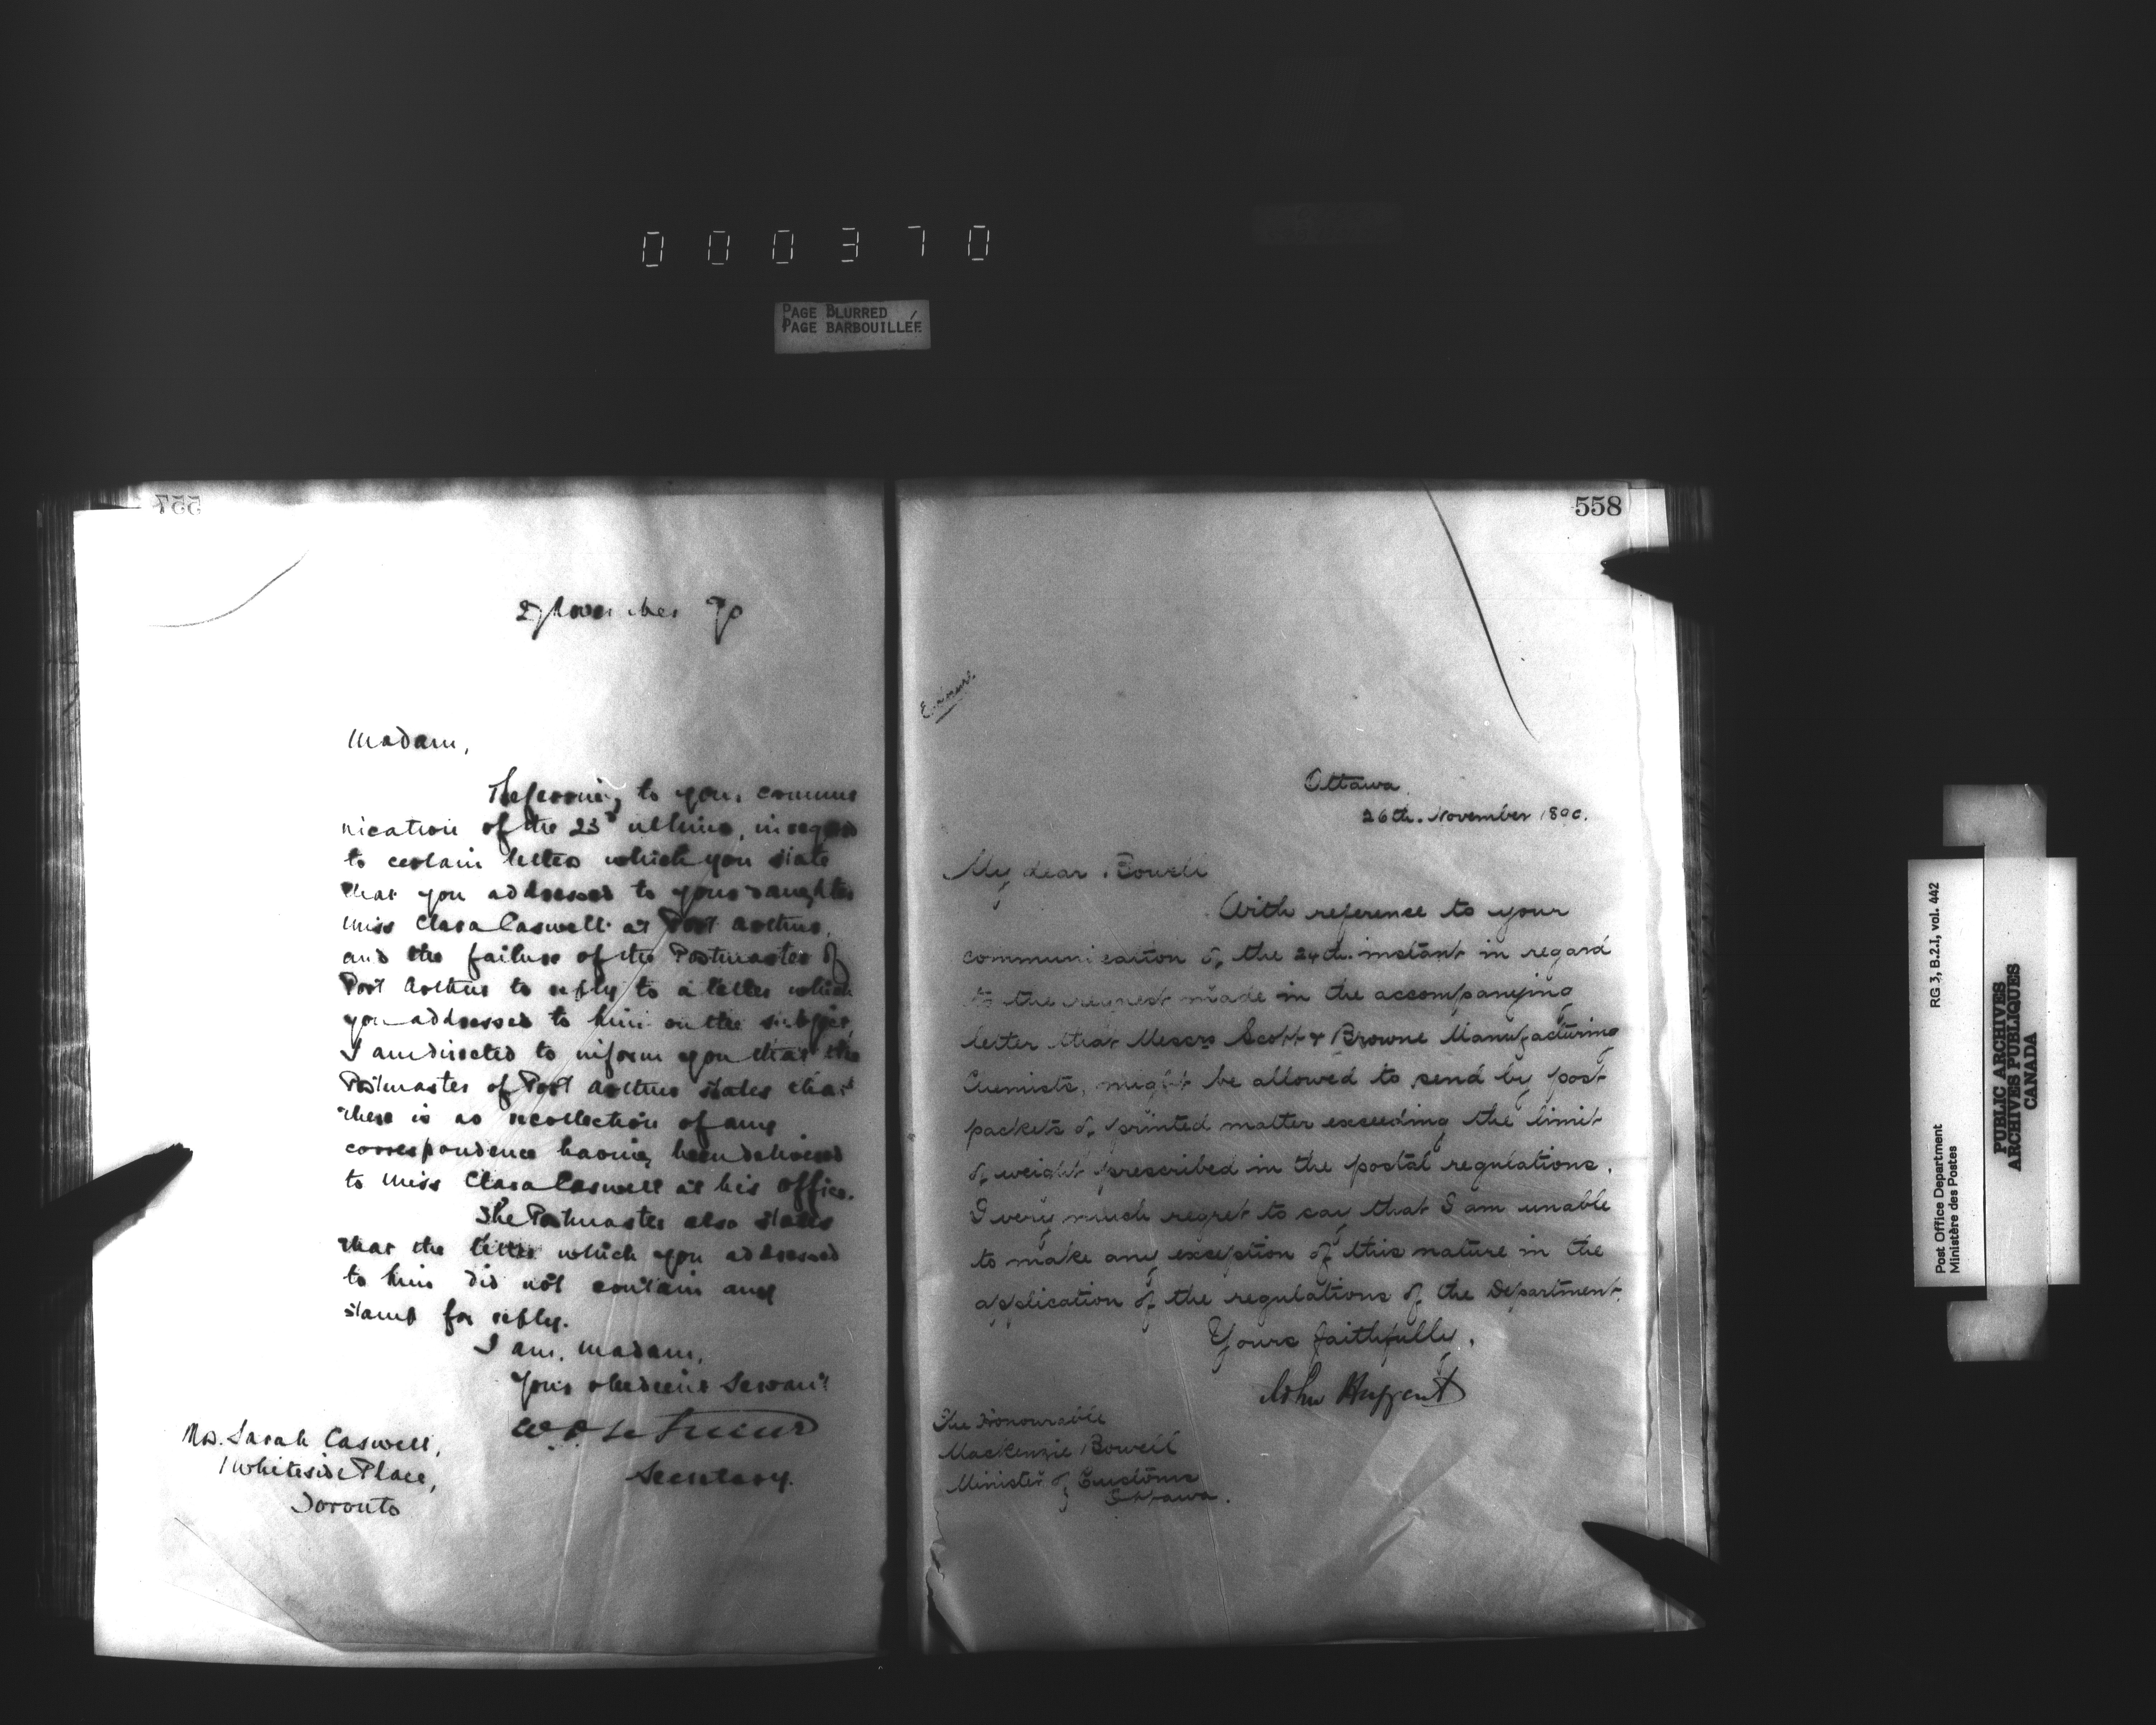 000370
PAGE BLURRED
PAGE BARBOUILLÉE
557
27 November 90
Madam,
Referring to your commu
nication of the 25th ultimo, in regard
to certain letters which you state
that you addressed to your daughter
Miss Clara Caswell at Port Arthur,
and the failure of the Postmaster of
Port Arthur to reply to a letter which
you addressed to him on the subject,
I am directed to inform you that the
Postmaster of Port Arthur states that
there is no recollection of any
correspondence having been delivered
to Miss Clara Caswell at his office.
The Postmaster also states
that the letter which you addressed
to him did not contain any
stamp for reply.
I am, Madam,
Your obedient Servant
Secretary.
Mrs. Sarah Caswell,
1 Whiteside Place,
Toronto
558
Enclosure.
Ottawa,
26th. November 1890.
My dear Bowell
With reference to your
communication of the 24th. instant in regard
to the request made in the accompanying
letter that Messrs Scott & Browne Manufacturing
Chemists, might be allowed to send by post
packets of printed matter exceeding the limit
of weight prescribed in the postal regulations,
I very much regret to say that I am unable
to make any exception of this nature in the
application of the regulations of the Department.
Yours faithfully,
John Haggart
The Honourable
MacKenzie Bowell
Minister of Customs
Ottawa.
Post Office Department RG 3, B.2.I, vol. 442
Ministère des Postes
PUBLIC ARCHIVES
ARCHIVES PUBLIQUES
CANADA